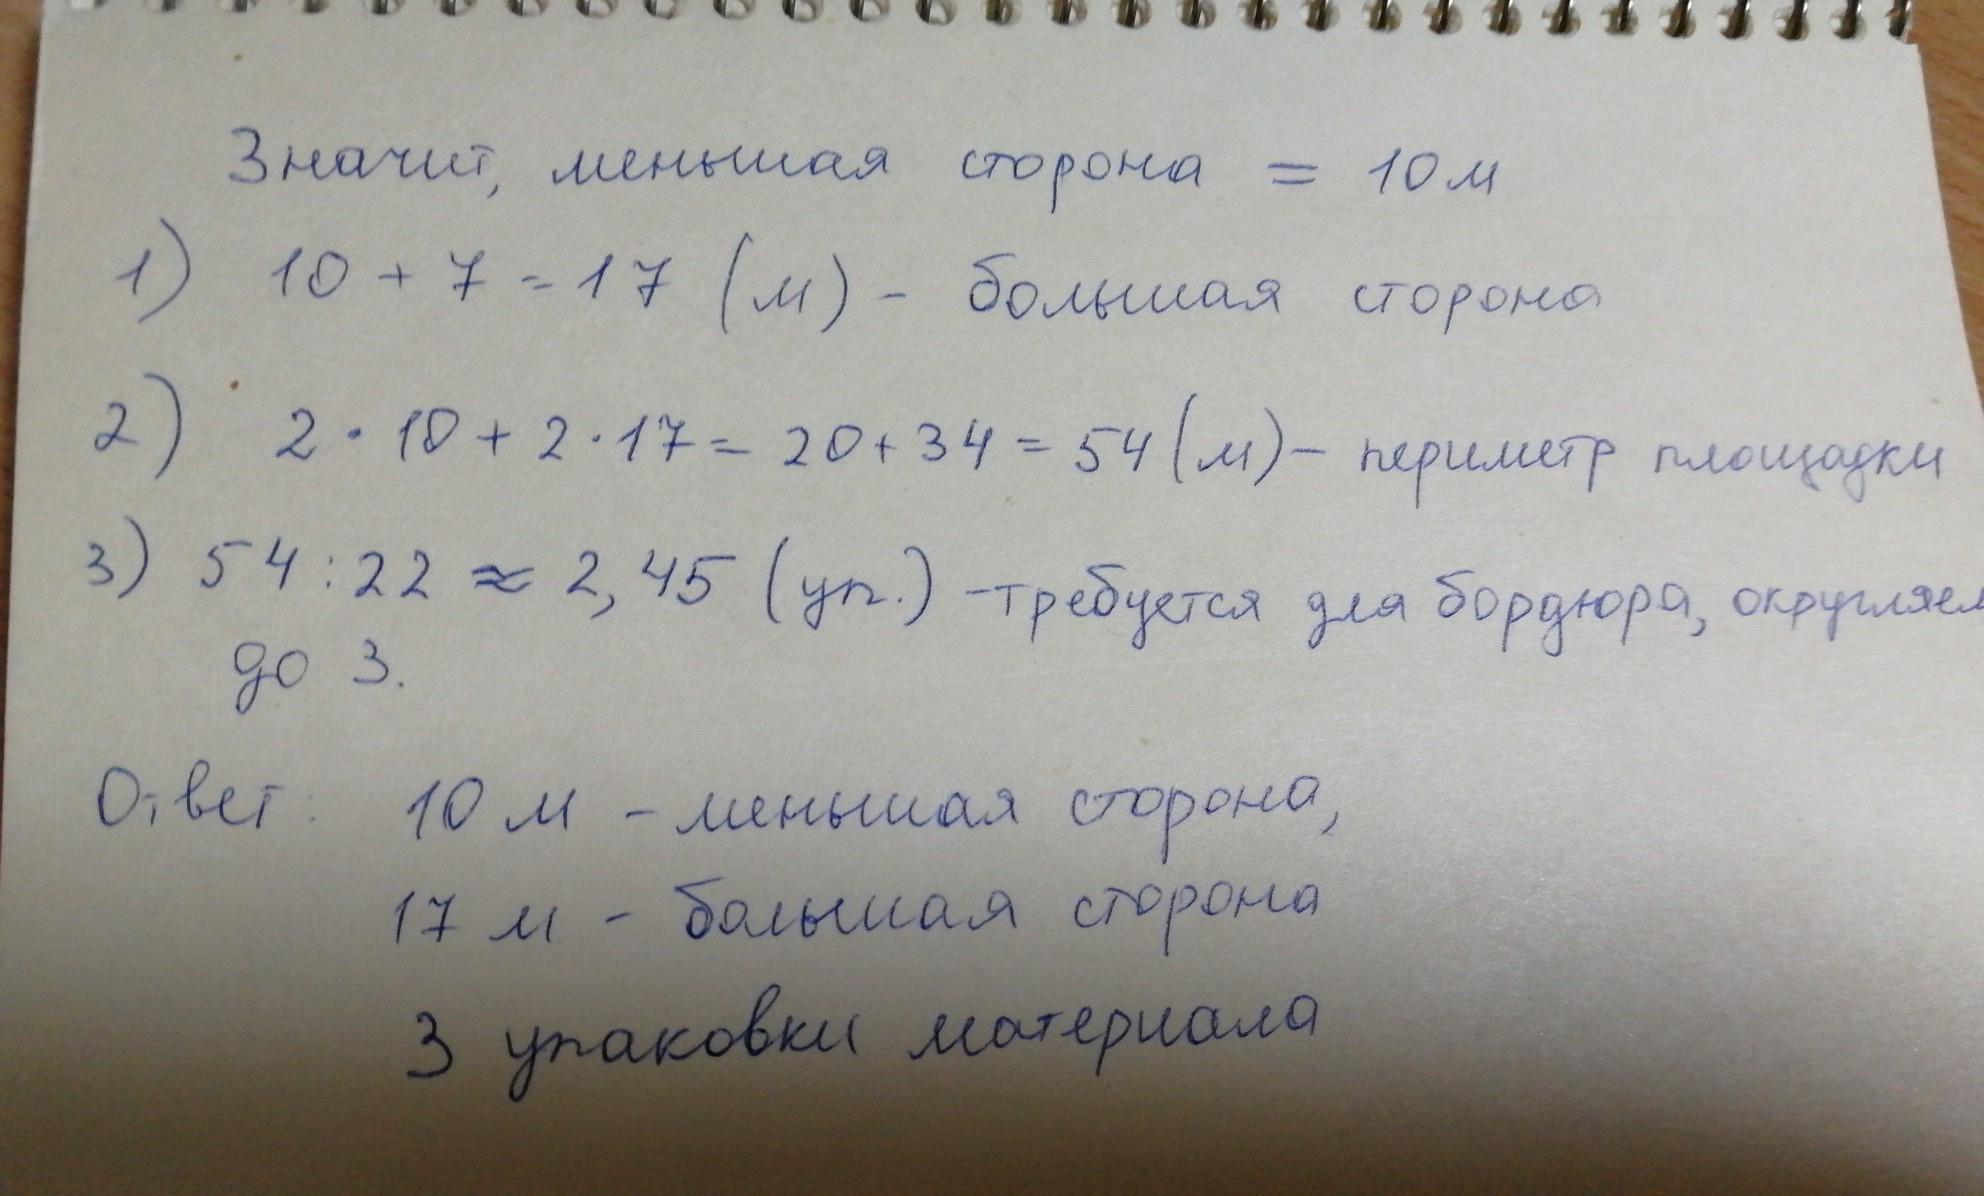 Значит, меньшая сторона = 10 м
1) 10 + 7 = 17 (м) - большая сторона
2) 2 · 10 + 2 · 17 = 20 + 34 = 54 (м) - периметр площадки
3) 54 : 22 ≈ 2,45 (уп.) - требуется для бордюра, округляем
до 3.
Ответ: 10 м - меньшая сторона,
17 м - большая сторона
3 упаковки материала